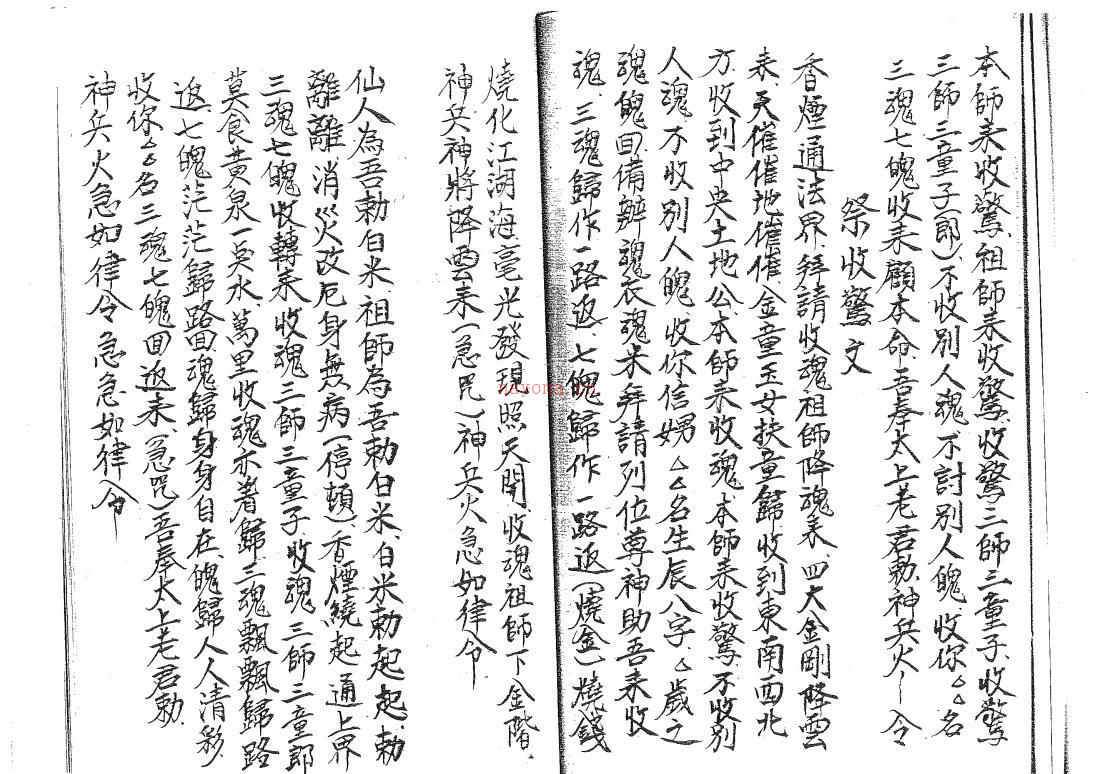 本師來收驚、祖師來收驚、收驚三師三童子、收驚
三師三童子(郎)、不收別人魂、不討別人魄、收你△△名
三魂七魄收來顧本命、吾奉太上老君勅、神兵火〜令
祭收驚文
香煙通法界、拜請收魂祖師降魂來、四大金剛降雲
來、天催催地催催、金童玉女扶童歸、收到東南西北
方、收到中央土地公、本師來收魂、本師來收驚、不收別
人魂、不收別人魄、收你信娚△△名生辰八字、△歲之
魂魄回、備辦魂衣魂米、拜請列位尊神助吾來收
魂、三魂歸作一路返、七魄歸作一路返(燒金)燒錢
燒化江湖海毫光發現照天開、收魂祖師下金階、
神兵神將降雲來(急咒)神兵火急如律令
仙人為吾勅白米、祖師為吾勅白米、白米勅起起勅
離離、消災改厄身無病(停頓)、香煙繞起通上界
三魂七魄收轉來、收魂三師三童子、收魂三師三童郎
莫食黃泉一点水、萬里收魂亦著歸、三魂飄飄歸路
返、七魄茫茫歸路回、魂歸身身自在、魄歸人人清彩、
收你△△名三魂七魄回返來、(急咒)吾奉太上老君勅
神兵火急如律令急急如律令
nayona.cn